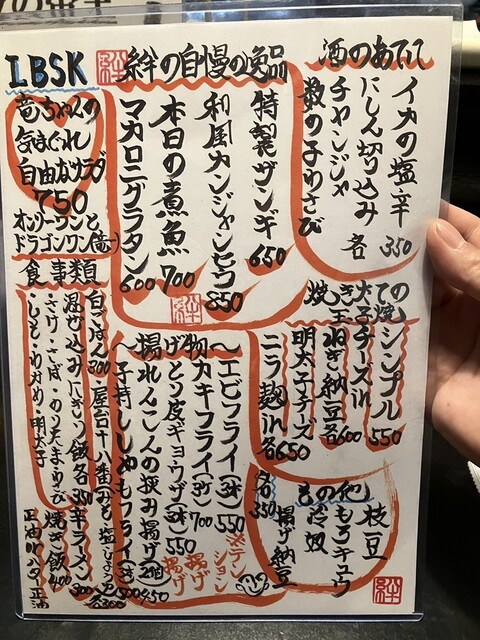 酒のあてに
イカの塩辛
にしん切り込み
チャンジャ
数の子わさび
各 350
絆 絆の自慢の逸品
特製ザンギ 650
和風カンジャンセウ 350
本日の煮魚 700
マカロニグラタン 600
LBSK
竜ちゃんの
気まぐれ
自由なサラダ
750
オンリーワンと
ドラゴンワン
シンプル 550
チーズin
ねぎ納豆 各600
明太子チーズ
ニラ麹in 各650
〜揚げ物〜
エビフライ(3本) 550
カキフライ(3ヶ) 700
とり皮ギョウザ(3本) 550
れんこんの挟み揚げ(2個) 450
子持ししゃもフライ 500
※テンション
揚げ
揚げ
その他
枝豆
もろキュウ
冷奴
揚げ納豆
各350
食事類
白ごはん 300
混ぜ込みにぎり飯 各350
・さけ・さば・のりたま・わさび
・しそ・わかめ・明太子
焼き飯 400
辛ラーメン 500
絆
絆